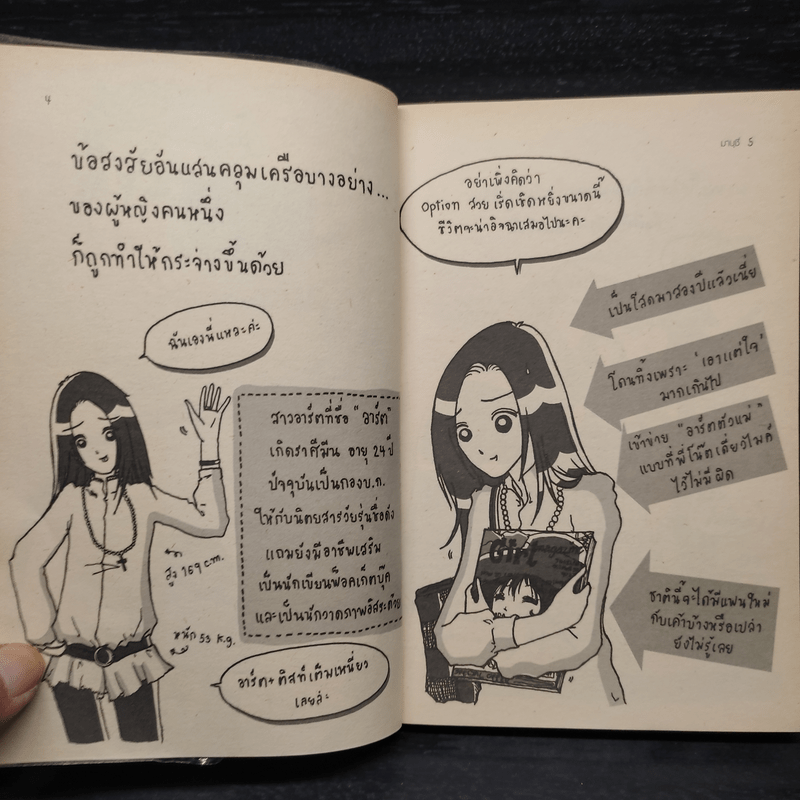 4
ข้อสงสัยอันแสนคลุมเครือบางอย่าง...
ของผู้หญิงคนหนึ่ง
ก็ถูกทำให้กระจ่างขึ้นด้วย
ฉันเองนี่แหละค่ะ
สาวอาร์ตที่ชื่อ "อาร์ต"
เกิดราศีมีน อายุ 24 ปี
ปัจจุบันเป็นกองบ.ก.
ให้กับนิตยสารวัยรุ่นชื่อดัง
แถมยังมีอาชีพเสริม
เป็นนักเขียนพ็อคเก็ตบุ๊ค
และเป็นนักวาดภาพอิสระด้วย
สูง 169 cm.
หนัก 53 k.g.
อาร์ต+ติสท์เต็มเหนี่ยว
เลยล่ะ
5
อย่าเพิ่งคิดว่า
Option สวย เริ่ดเชิดหยิ่งขนาดนี้
ชีวิตจะน่าอิจฉาเสมอไปนะคะ
เป็นโสดมาสองปีแล้วเนี่ย
โดนทิ้งเพราะ 'เอาแต่ใจ'
มากเกินไป
เข้าข่าย "อาร์ตตัวแม่"
แบบที่พี่โน๊ตเดี่ยวไมค์
ไว้ไม่มีผิด
Girl
magazine
ชาตินี้จะได้มีแฟนใหม่
กับเค้าบ้างหรือเปล่า
ยังไม่รู้เลย